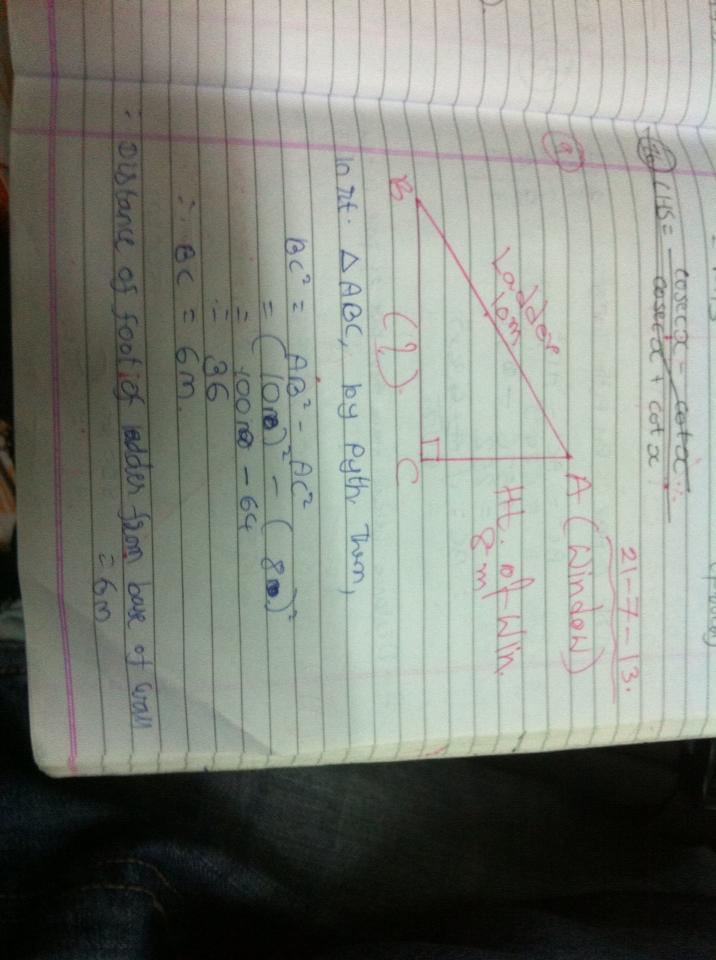 LHS = cosecx - cotx
cosecx + cot x
21-7-13.
9
A (Window)
Ladder
10m
Ht. of Win.
8m
B
(?)
C
In rt. △ ABC, by Pyth. Thm,
BC² = AB² - AC²
= (10)² - (8)²
= 100 - 64
= 36
∴ BC = 6m.
∴ Distance of foot of ladder from base of wall
= 6m